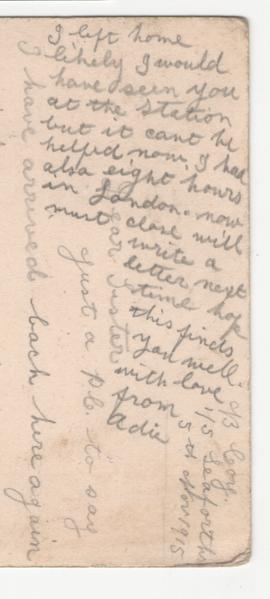 Dear Sister
just a p.c. to say
I have arrived back here again
I left home
likely I would
have seen you
at the station
but it cant be
helped now. I had
also eight hours
in London. now
must close will
write a
letter next
time hope
this finds
you well.
with love
from
Adie
Coy.
1/5 Seaforths
5th Nov 1915